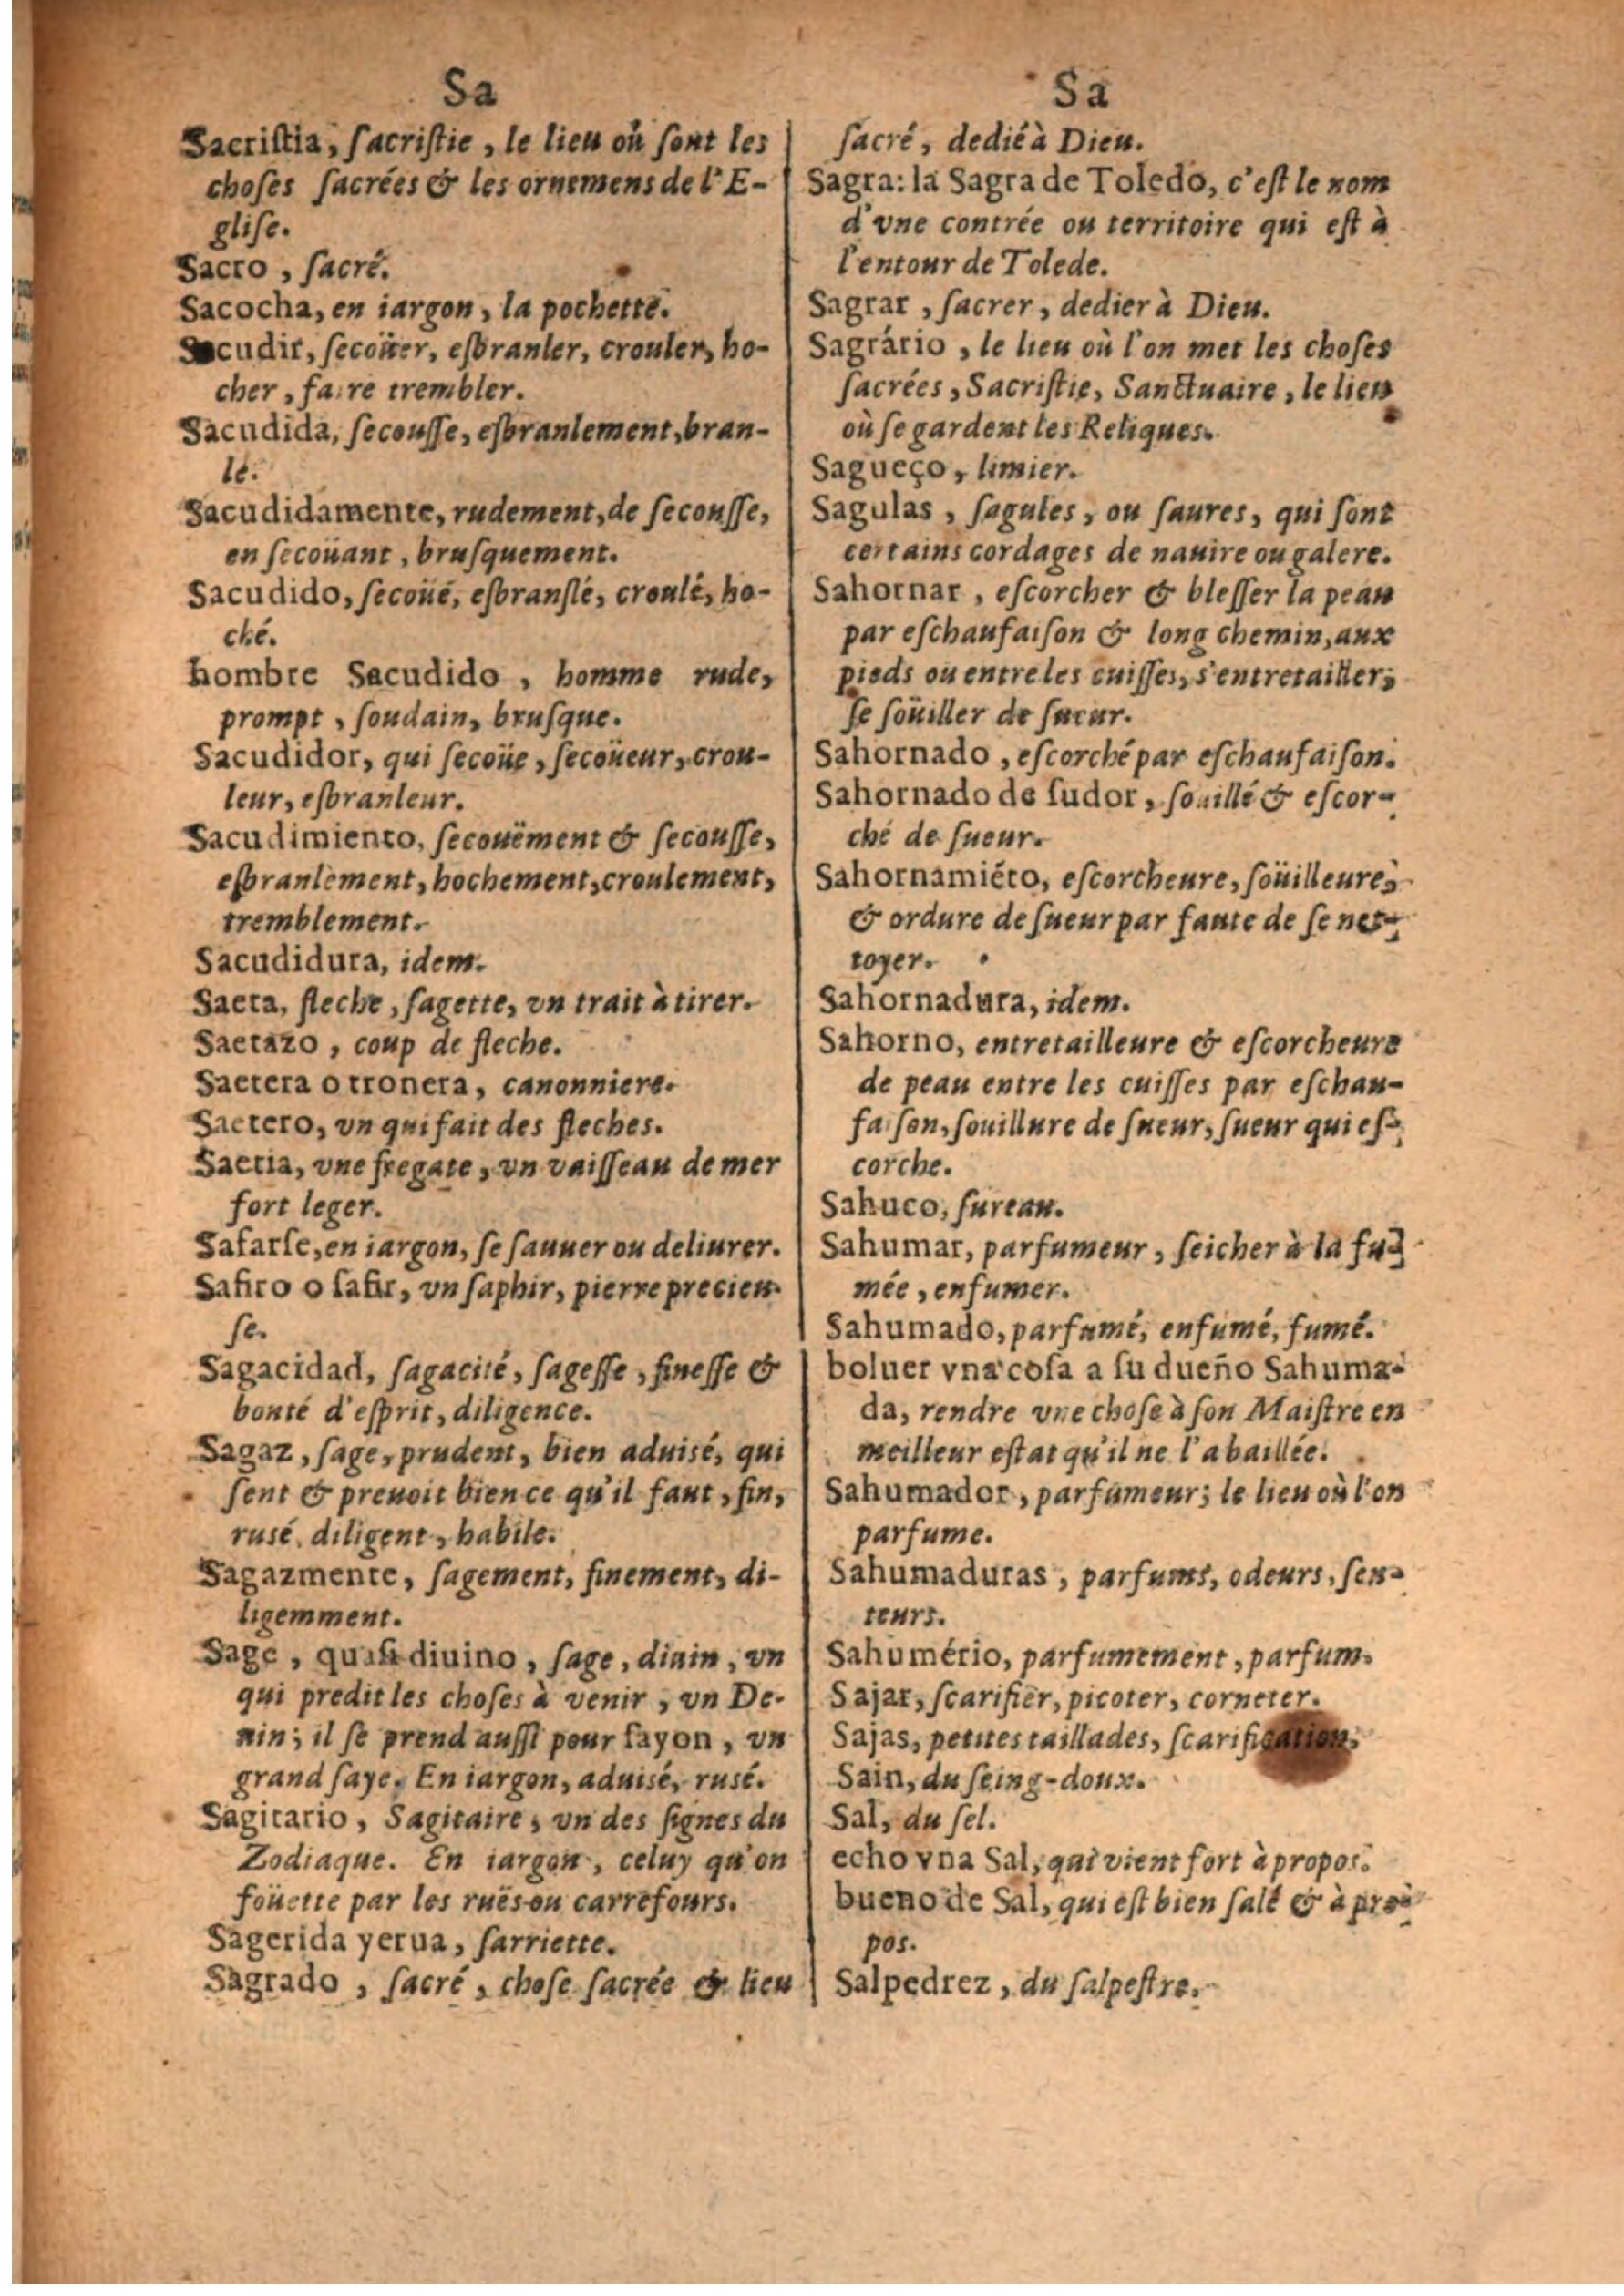 Sa
Sacriſtia, ſacriſtie, le lieu où ſont les
choſes ſacrées & les ornemens de l'E-
gliſe.
Sacro, ſacré.
Sacocha, en iargon, la pochette.
Sacudir, ſecoüer, eſbranler, crouler, ho-
cher, faire trembler.
Sacudida, ſecouſſe, eſbranlement, bran-
le.
Sacudidamente, rudement, de ſecouſſe,
en ſecoüant, bruſquement.
Sacudido, ſecoüé, eſbranſlé, croulé, ho-
ché.
hombre Sacudido, homme rude,
prompt, ſoudain, bruſque.
Sacudidor, qui ſecoüe, ſecoüeur, crou-
leur, eſbranleur.
Sacudimiento, ſecouëment & ſecouſſe,
eſbranlement, hochement, croulement,
tremblement.
Sacudidura, idem.
Saeta, fleche, ſagette, vn trait à tirer.
Saetazo, coup de fleche.
Saetera o tronera, canonniere.
Saetero, vn qui fait des fleches.
Saetia, vne fregate, vn vaiſſeau de mer
fort leger.
Safarſe, en iargon, ſe ſauuer ou deliurer.
Safiro o ſafir, vn ſaphir, pierre precieu-
ſe.
Sagacidad, ſagacité, ſageſſe, fineſſe &
bonté d'eſprit, diligence.
Sagaz, ſage, prudent, bien aduisé, qui
ſent & preuoit bien ce qu'il faut, fin,
rusé, diligent, habile.
Sagazmente, ſagement, finement, di-
ligemment.
Sage, quaſi diuino, ſage, diuin, vn
qui predit les choſes à venir, vn De-
uin; il ſe prend auſſi pour ſayon, vn
grand ſaye. En iargon, aduisé, rusé.
Sagitario, Sagitaire, vn des ſignes du
Zodiaque. En iargon, celuy qu'on
foüette par les ruës ou carrefours.
Sagerida yerua, ſarriette.
Sagrado, ſacré, choſe ſacrée & lieu
Sa
ſacré, dedié à Dieu.
Sagra: la Sagra de Toledo, c'eſt le nom
d'vne contrée ou territoire qui eſt à
l'entour de Tolede.
Sagrar, ſacrer, dedier à Dieu.
Sagrário, le lieu où l'on met les choſes
ſacrées, Sacriſtie, Sanctuaire, le lieu
où ſe gardent les Reliques.
Sagueço, limier.
Sagulas, ſagules, ou ſaures, qui ſont
certains cordages de nauire ou galere.
Sahornar, eſcorcher & bleſſer la peau
par eſchaufaiſon & long chemin, aux
pieds ou entre les cuiſſes, s'entretailler,
ſe ſoüiller de ſueur.
Sahornado, eſcorché par eſchaufaiſon.
Sahornado de ſudor, ſouillé & eſcor-
ché de ſueur.
Sahornamiéto, eſcorcheure, ſoüilleure,
& ordure de ſueur par faute de ſe net-
toyer.
Sahornadura, idem.
Sahorno, entretailleure & eſcorcheure
de peau entre les cuiſſes par eſchau-
faiſon, ſouillure de ſueur, ſueur qui eſ-
corche.
Sahuco, ſureau.
Sahumar, parfumeur, ſeicher à la fu-
mée, enfumer.
Sahumado, parfumé, enfumé, fumé.
boluer vna coſa a ſu dueño Sahuma-
da, rendre vne choſe à ſon Maiſtre en
meilleur eſtat qu'il ne l'a baillée.
Sahumador, parfumeur; le lieu où l'on
parfume.
Sahumaduras, parfums, odeurs, ſen-
teurs.
Sahumério, parfumement, parfum.
Sajar, ſcarifier, picoter, corneter.
Sajas, petites taillades, ſcarification.
Sain, du ſeing-doux.
Sal, du ſel.
echo vna Sal, qui vient fort à propos.
bueno de Sal, qui eſt bien ſalé & à pro-
pos.
Salpedrez, du ſalpeſtre.